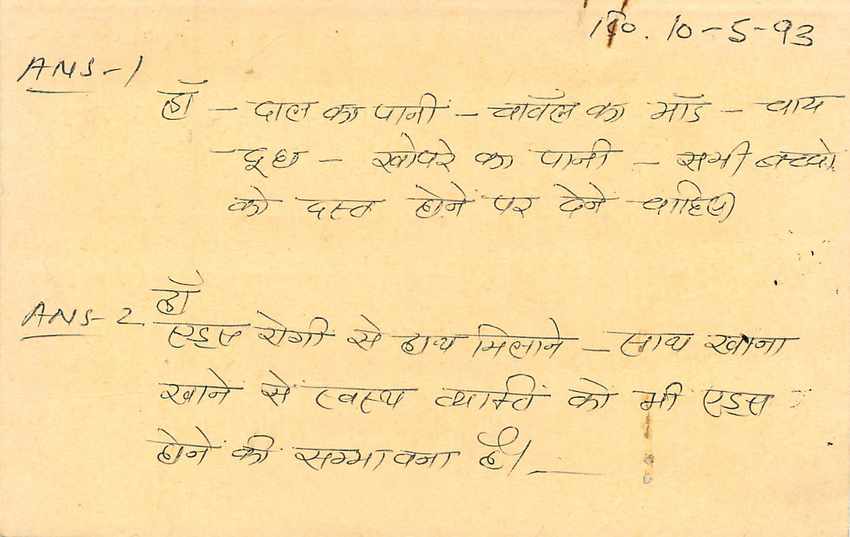 No. 10-5-93
ANS-1
हॉ - दाल का पानी - चॉवल का मॉड - चाय
दूध - खोपरे का पानी - सभी बच्चो
को दस्त होने पर देने चाहिए
ANS-2 हॉ
एड्स रोगी से हाथ मिलाने - साथ खाना
खाने से स्वस्थ व्यक्ति को भी एड्स
होने की सम्भावना है।